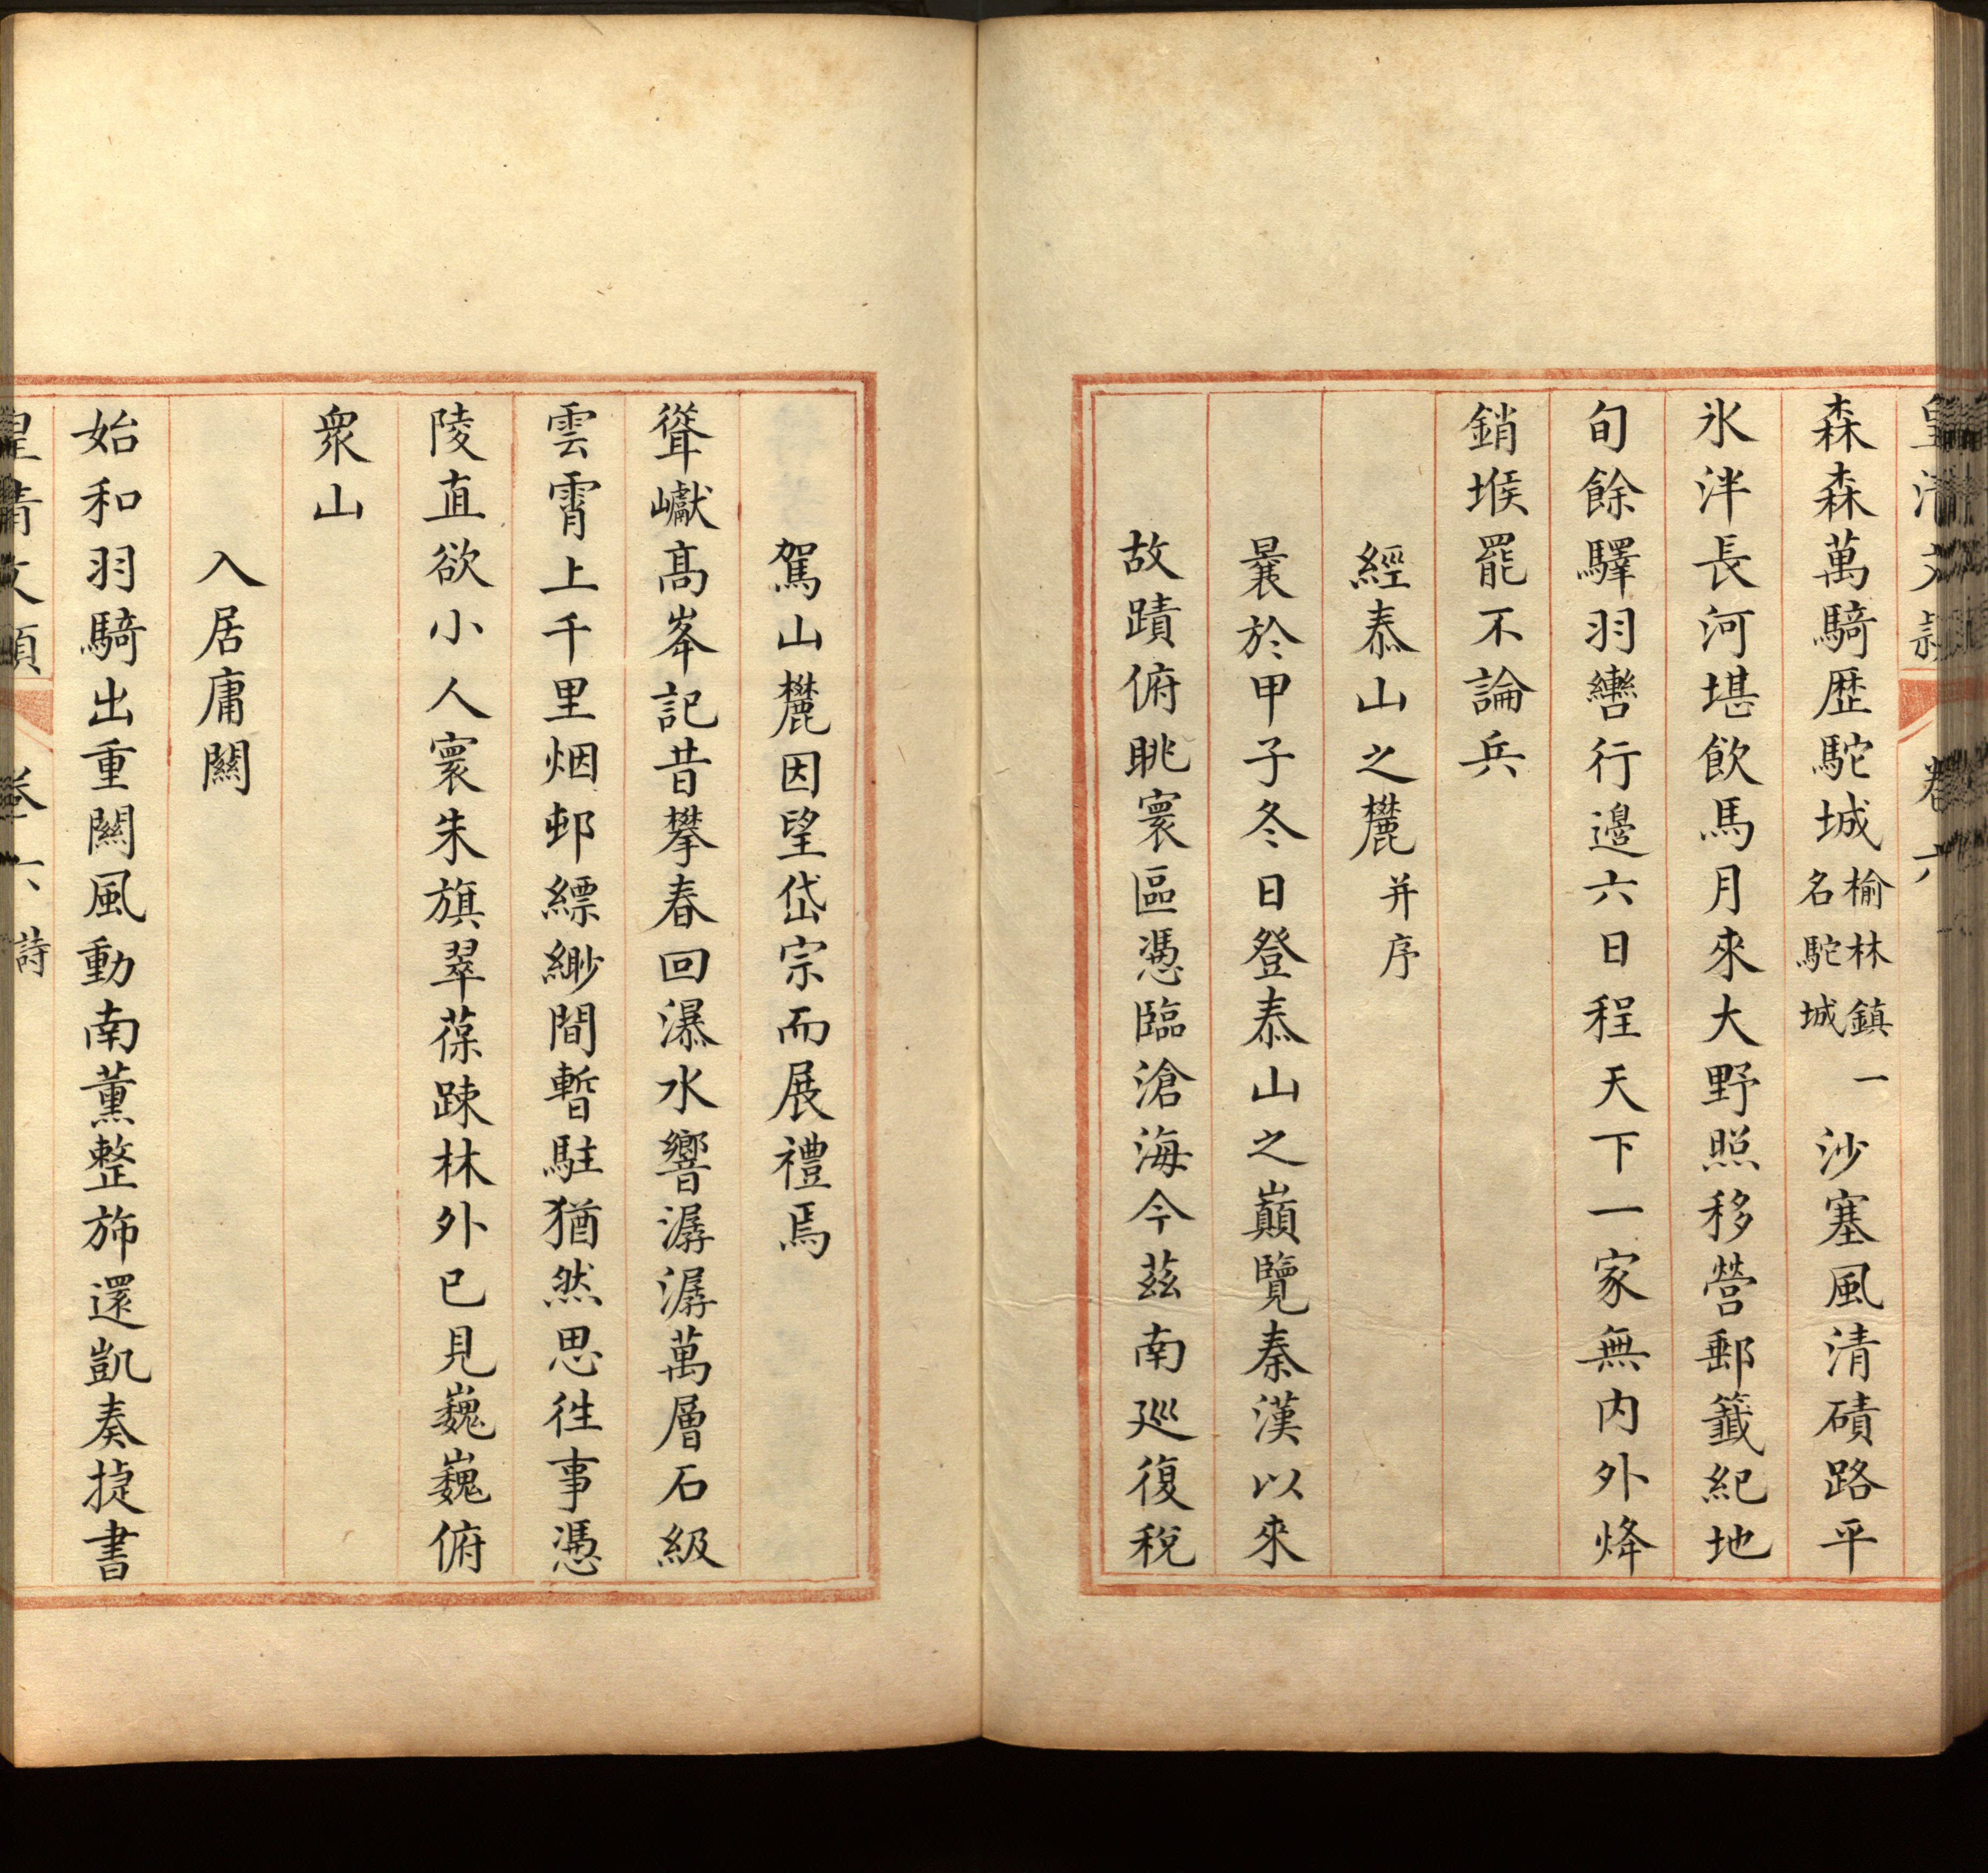 皇清文穎 卷六
森森萬騎歴駝城榆林鎮一名駝城沙塞風清磧路平
氷泮長河堪飲馬月來大野照移營郵籖紀地
旬餘驛羽轡行邊六日程天下一家無内外烽
銷堠罷不論兵
經泰山之麓并序
曩於甲子冬日登泰山之巔覽秦漢以來
故蹟俯眺寰區憑臨滄海今茲南廵復稅
駕山麓因望岱宗而展禮焉
聳巘髙峯記昔攀春回瀑水響潺潺萬層石級
雲霄上千里烟邨縹緲間暫駐猶然思徃事憑
陵直欲小人寰朱旗翠葆踈林外已見巍巍俯
衆山
入居庸闗
始和羽騎出重闗風動南薫整斾還凱奏㨗書
皇清文穎 卷六 詩